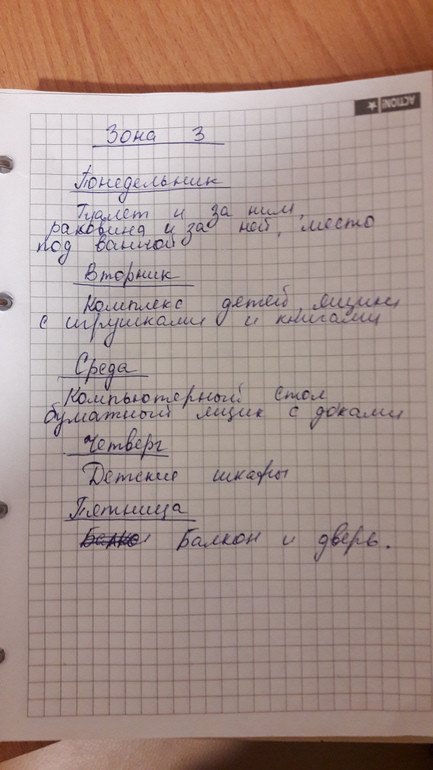 ACTION!
Зона 3
Понедельник
Туалет и за ним,
раковина и за ней, место
под ванной
Вторник
Комплекс детей, ящики
с игрушками и книгами
Среда
Компьютерный стол
бумажный ящик с доками
Четверг
Детские шкафы
Пятница
Балкон и дверь.